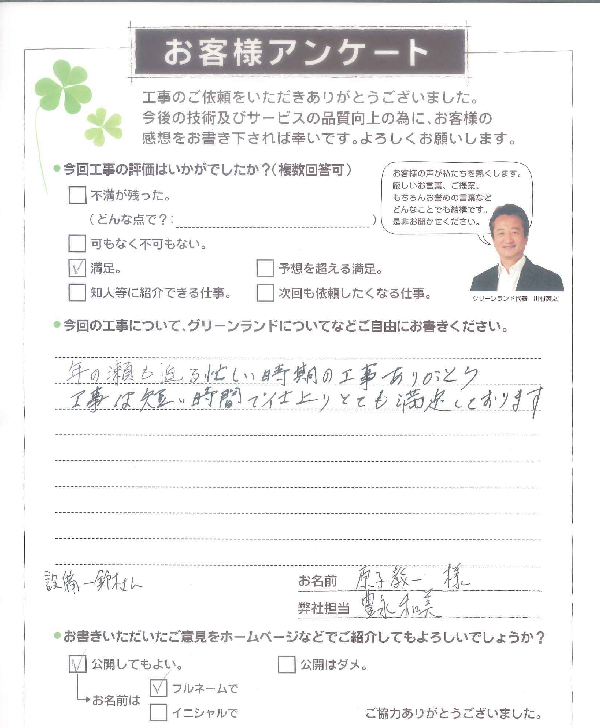 お客様アンケート
工事のご依頼をいただきありがとうございました。
今後の技術及びサービスの品質向上の為に、お客様の
感想をお書き下されば幸いです。よろしくお願いします。
今回工事の評価はいかがでしたか?(複数回答可)
お客様の声が私たちを熱くします。
厳しいお言葉、ご提案、
もちろんお褒めの言葉など
どんなことでも結構です。
是非お聞かせください。
不満が残った。
(どんな点で?: )
可もなく不可もない。
満足。
予想を超える満足。
知人等に紹介できる仕事。
次回も依頼したくなる仕事。
グリーンランド代表
今回の工事について、グリーンランドについてなどご自由にお書きください。
年の瀬も迫る忙しい時期の工事ありがとう
工事は短い時間で仕上りとても満足しております
設備 鈴木さん
お名前 原子 一 様
弊社担当 豊永和美
お書きいただいたご意見をホームページなどでご紹介してもよろしいでしょうか?
公開してもよい。
公開はダメ。
お名前は
フルネームで
イニシャルで
ご協力ありがとうございました。